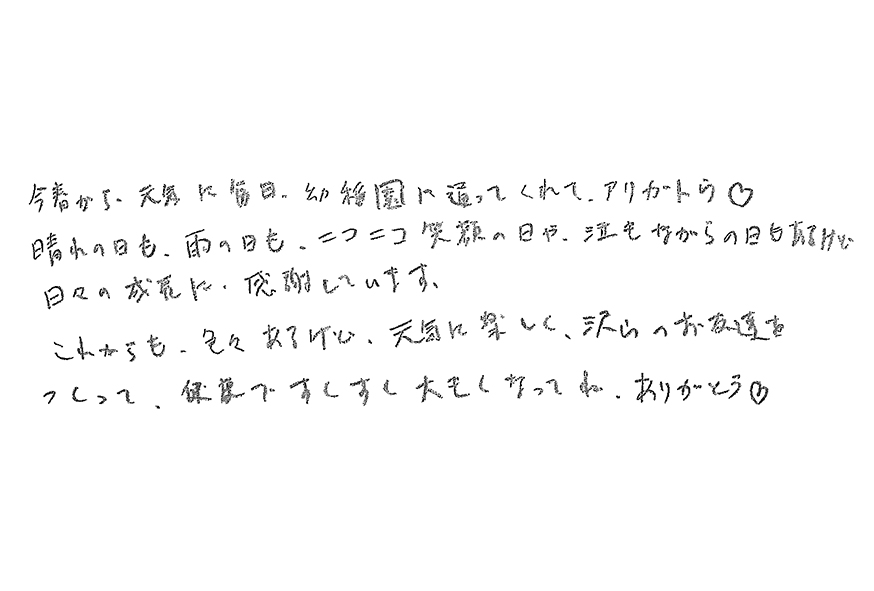 今春から、元気に毎日、幼稚園に通ってくれて、アリガトウ♡
晴れの日も、雨の日も、ニコニコ笑顔の日や、泣きながらの日もあるけど
日々の成長に、感謝しています。
これからも、色々あるけど、元気に楽しく、沢山のお友達を
つくって、保育ですくすく大きくなってね、ありがとう♡